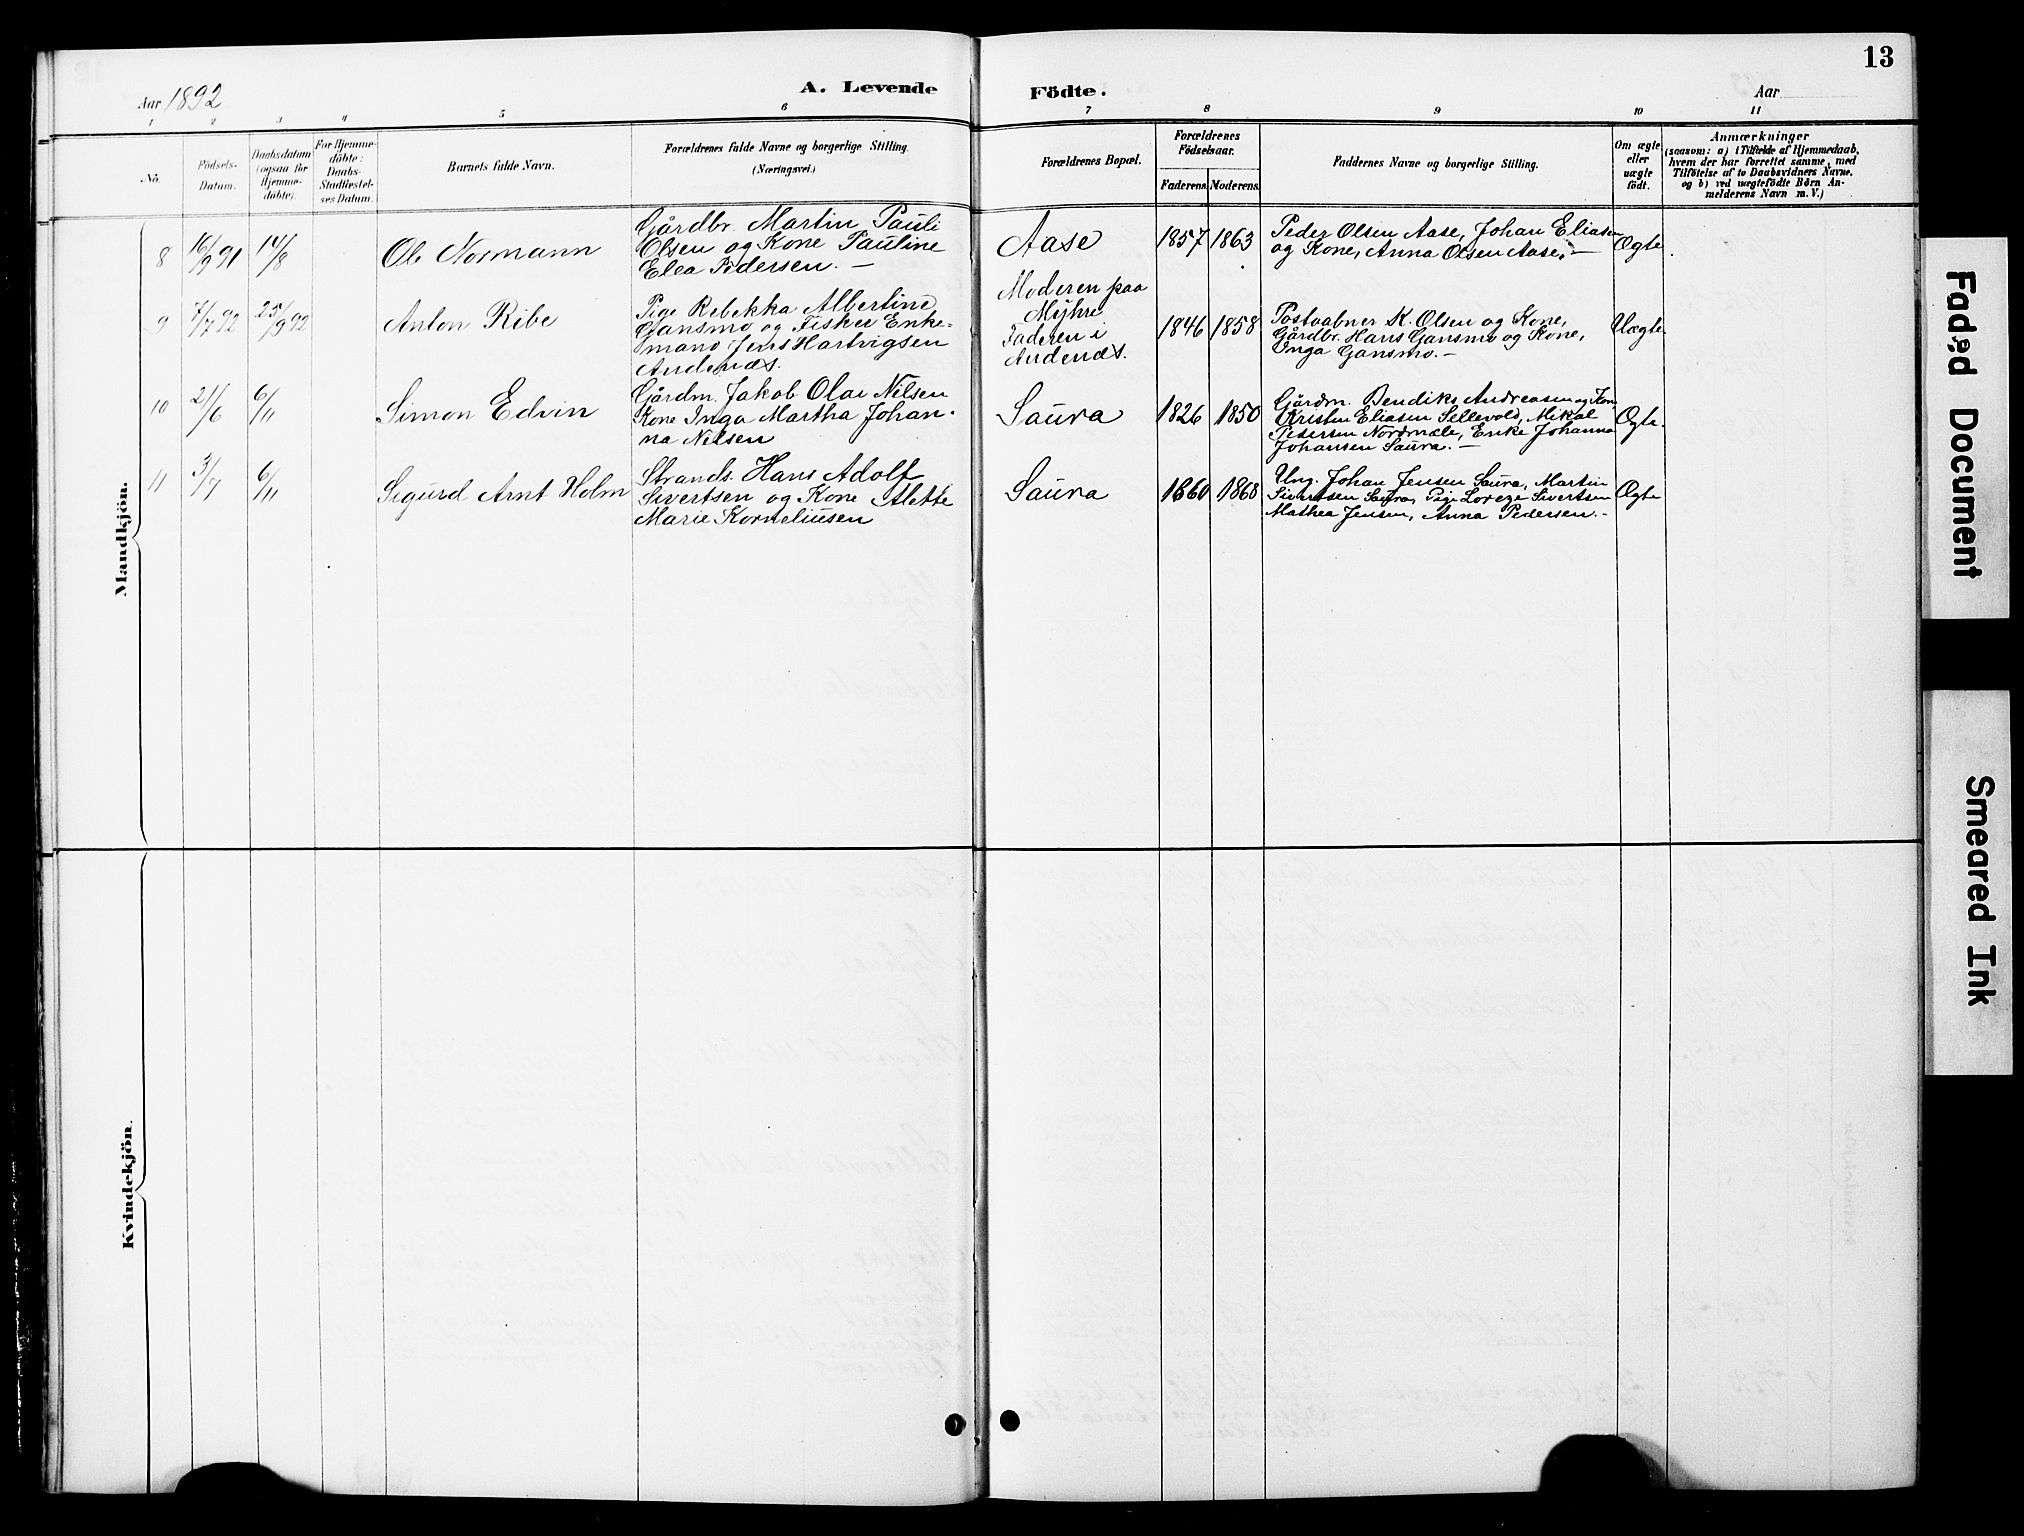 13
Aar 1892
A. Levende Födte.
Aar
1 2 3 4 5 6 7 8 9 10 11
No.
Födsels-
Datum.
Daabsdatum
(ogsaa for
Hjemme-
döbte).
For Hjemme-
döbte:
Daabs-
Stadfæstel-
ses Datum.
Barnets fulde Navn.
Forældrenes fulde Navne og borgerlige Stilling.
(Næringsvei.)
Forældrenes Bopæl.
Forældrenes
Födselsaar.
Faderens. Moderens.
Faddernes Navne og borgerlige Stilling.
Om ægte
eller
uægte
födt.
Anmærkninger
(saasom: a) i Tilfælde af Hjemmedaab,
hvem der har forrettet samme, med
Tilföielse af to Daabsvidners Navne,
og b) ved uægtefödte Börn An-
melderens Navn m. V.)
Mandkjön.
8
16/9 91
14/8
Ole Normann
Gårdbr. Martin Pauli
Olsen og Kone Pauline
Elea Pedersen. —
Aase
1857 1863
Peder Olsen Aase, Johan Eliasen
og Kone, Anna Olsen Aase. —
Ægte.
9
7/7 92
25/9 92
Anton Ribe
Pige Rebekka Albertine
Gansmo og Fisker Enke-
mand Jens Hartvigsen
Andenæs.
Moderen paa
Myhre
Faderen i
Andenæs.
1846 1858
Postaabner K. Olsen og Kone,
Gårdbr. Hans Gansmo og Kone,
Inga Gansmo. —
Uægte
10
21/6
6/11
Simon Edvin
Gårdm. Jakob Olai Nilsen
Kone Inga Martha Johan-
na Nilsen
Saura
1826 1850
Gårdm. Bendiks Andreasen og Kone
Kristen Eliasen Sellevold, Mikal
Pedersen Nordmæle, Enke Johanna
Johansen Saura. —
Ægte.
11
3/7
6/11
Sigurd Arnt Holm
Strands. Hans Adolf
Sivertsen og Kone Alette
Marie Korneliusen
Saura
1860 1868
Ung. Johan Jensen Saura, Martin
Sivertsen Saura, Pige Loreze Sivertsen
Mathea Jensen, Anna Pedersen. -
Ægte
Kvindekjön.
Faded Document
Smeared Ink